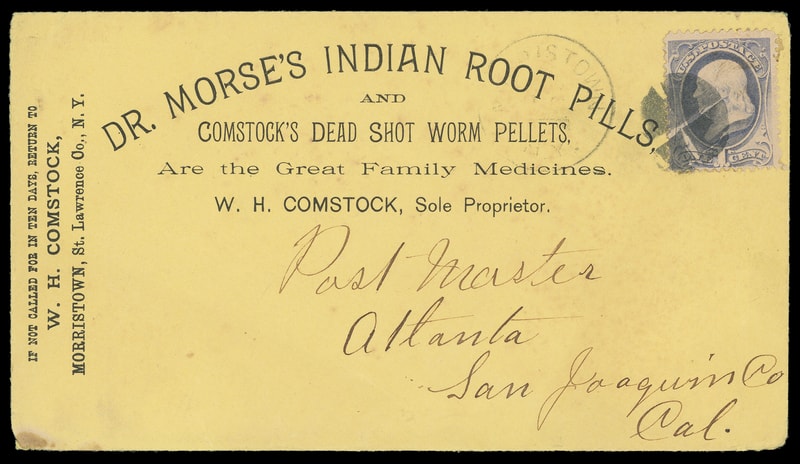 DR. MORSE'S INDIAN ROOT PILLS,
AND
COMSTOCK'S DEAD SHOT WORM PELLETS,
Are the Great Family Medicines.
W. H. COMSTOCK, Sole Proprietor.
IF NOT CALLED FOR IN TEN DAYS, RETURN TO
W. H. COMSTOCK,
MORRISTOWN, St. Lawrence Co., N. Y.
U.S. POSTAGE
Post Master
Atlanta
San Joaquin Co
Cal.